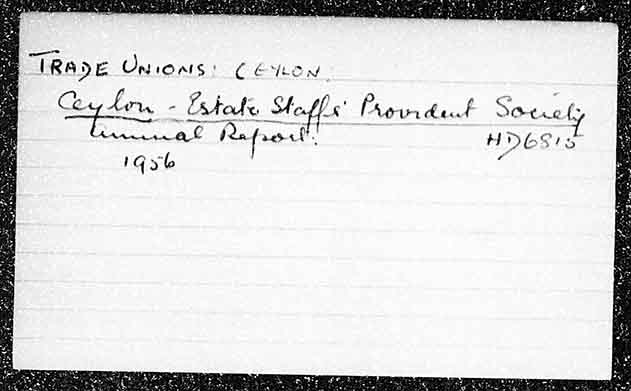 TRADE UNIONS: CEYLON.
Ceylon - Estate Staffs' Provident Society
Annual Report.
HD6815
1956